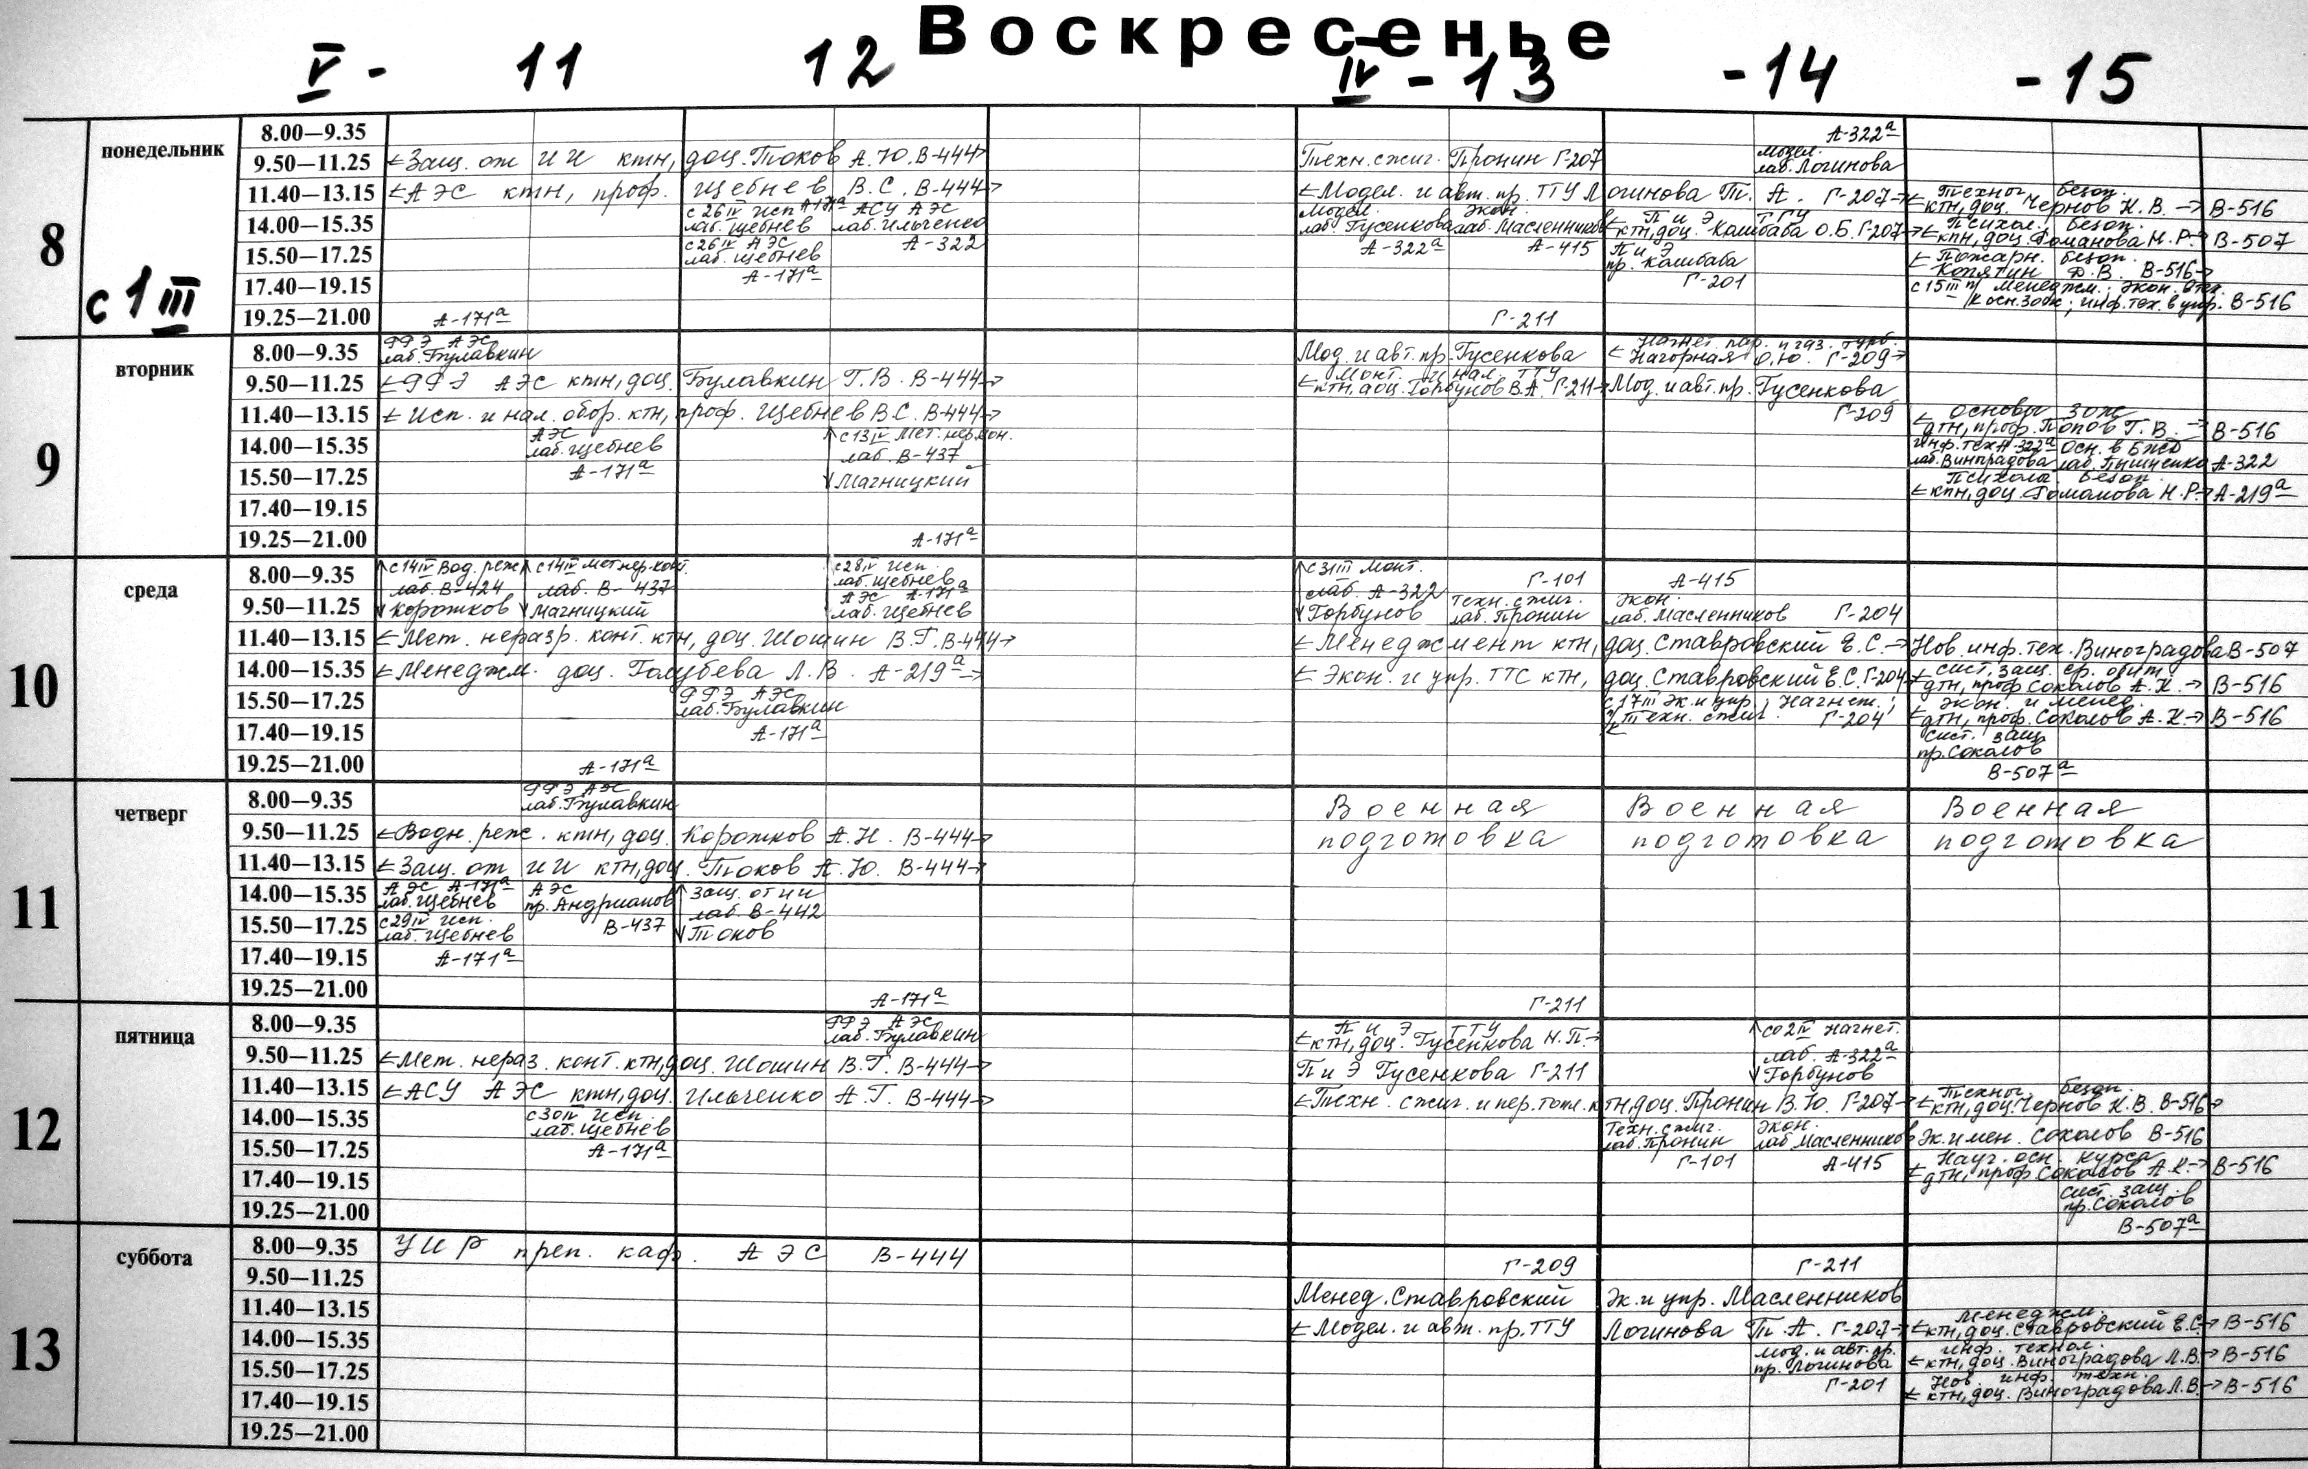 Воскресенье
V - 11 12 IV - 13 -14 -15
8
с 1 III
понедельник
8.00—9.35 А-322а
9.50—11.25 Защ. от ИИ ктн, доц. Токов А.Ю. В-444 Техн. сжиг. Пронин Г-207 Модел. лаб. Логинова
11.40—13.15 АЭС ктн, проф. Щебнев В.С. В-444 Модел. и авт. пр. ТТУ Логинова Т. А. Г-207 Техног. безоп. ктн, доц. Чернов К.В. В-516
14.00—15.35 с 26 IV Исп А-171а лаб. Щебнев АСУ АЭС лаб. Ильченко Модел. лаб. Гусенкова Экон. лаб. Масленников П и Э ТТУ ктн, доц. Колибаба О.Б. Г-207 Психол. безоп. кпн, доц. Романова Н.Р. В-507
15.50—17.25 с 26 IV АЭС лаб. Щебнев А-322 А-322а А-415 П и Э пр. Колибаба Пожарн. безоп. Копягин Д.В. В-516
17.40—19.15 А-171а Г-201 с 15 III Менеджм.; Экон. отх.
19.25—21.00 А-171а Г-211 осн. ЗОЖ; инф. тех. в упр. В-516
9
вторник
8.00—9.35 ФФЭ АЭС лаб. Булавкин Мод. и авт. пр. Гусенкова Нагнет. пар. и газ. турб. Нагорная О.Ю. Г-209
9.50—11.25 ФФЭ АЭС ктн, доц. Булавкин Г.В. В-444 Монт. и нал. ТТУ ктн, доц. Горбунов В.А. Г-211 Мод. и авт. пр. Гусенкова
11.40—13.15 Исп. и нал. обор. ктн, проф. Щебнев В.С. В-444 Г-209 Основы ЗОЖ дтн, проф. Попов Г.В. В-516
14.00—15.35 АЭС лаб. Щебнев с 13 IV Мет. нер. кон. лаб. В-437 Инф. техн. 322а лаб. Виноградова Осн. в БЖД лаб. Пышненко А-322
15.50—17.25 А-171а Магницкий Психолог. безоп. кпн, доц. Романова Н.Р. А-219а
17.40—19.15
19.25—21.00 А-171а
10
среда
8.00—9.35 с 14 IV Вод. реж. лаб. В-424 с 14 IV Мет. нер. конт. лаб. В-437 с 28 IV Исп. лаб. Щебнев А-171а с 31 III Монт. лаб. А-322 Г-101 А-415
9.50—11.25 Коротков Магницкий АЭС лаб. Щебнев Горбунов Техн. сжиг. лаб. Пронин Экон. лаб. Масленников Г-204
11.40—13.15 Мет. неразр. конт. ктн, доц. Шошин В.Г. В-444 Менеджмент ктн, доц. Ставровский Е.С. Нов. инф. тех. Виноградова В-507
14.00—15.35 Менеджм. доц. Голубева Л.В. А-219а Экон. и упр. ТТС ктн, доц. Ставровский Е.С. Г-204 Сист. защ. ср. обит. дтн, проф. Соколов А.К. В-516
15.50—17.25 ФФЭ АЭС лаб. Булавкин с 17 III Эк. и упр.; Нагнет.; Техн. сжиг. Г-204 Экон. и менед. дтн, проф. Соколов А.К. В-516
17.40—19.15 А-171а Сист. защ. пр. Соколов
19.25—21.00 А-171а В-507а
11
четверг
8.00—9.35 ФФЭ АЭС лаб. Булавкин Военная Военная Военная
9.50—11.25 Водн. реж. ктн, доц. Коротков А.Н. В-444 подготовка подготовка подготовка
11.40—13.15 Защ. от ИИ ктн, доц. Токов А.Ю. В-444
14.00—15.35 АЭС А-171а лаб. Щебнев АЭС пр. Андрианов Защ. от ИИ лаб. В-442
15.50—17.25 с 29 IV Исп. лаб. Щебнев В-437 Токов
17.40—19.15 А-171а
19.25—21.00 А-171а Г-211
12
пятница
8.00—9.35 ФФЭ АЭС лаб. Булавкин П и Э ТТУ ктн, доц. Гусенкова Н.П. со 2 IV Нагнет. лаб. А-322а
9.50—11.25 Мет. нераз. конт. ктн, доц. Шошин В.Г. В-444 П и Э Гусенкова Г-211 Горбунов
11.40—13.15 АСУ АЭС ктн, доц. Ильченко А.Г. В-444 Техн. сжиг. и пер. топл. ктн, доц. Пронин В.Ю. Г-207 Техног. безоп. ктн, доц. Чернов К.В. В-516
14.00—15.35 с 30 IV Исп. лаб. Щебнев Техн. сжиг. лаб. Пронин Экон. лаб. Масленников Эк. и мен. Соколов В-516
15.50—17.25 А-171а Г-101 А-415 Науч. осн. курса дтн, проф. Соколов А.К. В-516
17.40—19.15 Сист. защ. пр. Соколов
19.25—21.00 В-507а
13
суббота
8.00—9.35 УИР преп. каф. АЭС В-444 Г-209 Г-211
9.50—11.25 Менед. Ставровский Эк. и упр. Масленников
11.40—13.15 Модел. и авт. пр. ТТУ Логинова Т.А. Г-207 Менеджм. ктн, доц. Ставровский Е.С. В-516
14.00—15.35 Мод. и авт. пр. пр. Логинова Инф. технол. ктн, доц. Виноградова Л.В. В-516
15.50—17.25 Г-201 Нов. инф. техн. ктн, доц. Виноградова Л.В. В-516
17.40—19.15
19.25—21.00